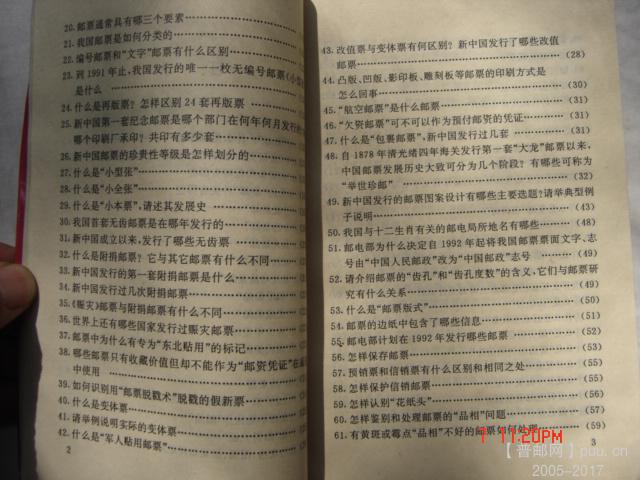 20. 邮票通常具有哪三个要素
21. 我国邮票是如何分类的
22. 编号邮票和“文字”邮票有什么区别
23. 到1991年止,我国发行的唯一一枚无编号邮票(小型
是什么
24. 什么是再版票? 怎样区别24套再版票
25. 新中国第一套纪念邮票是哪个部门在何年何月发行的
哪个印刷厂承印? 共印有多少套
26. 新中国邮票的珍贵性等级是怎样划分的
27. 什么是“小型张”
28. 什么是“小全张”
29. 什么是“小本票”,请述其发展史
30. 我国首套无齿邮票是在哪年发行的
31. 新中国成立以来,发行了哪些无齿票
32. 什么是附捐邮票? 它与其它邮票有什么不同
33. 新中国发行的第一套附捐邮票是什么
34. 新中国发行过几次附捐邮票
35. 《赈灾》邮票与附捐邮票有什么不同
36. 世界上还有哪些国家发行过赈灾邮票
37. 邮票中为什么有专为“东北贴用”的标记
38. 哪些邮票只有收藏价值但却不能作为“邮资凭证”在
中使用
39. 如何识别用“邮票脱戳术”脱戳的假新票
40. 什么是变体票
41. 请举例说明实际的变体票
42. 什么是“军人贴用邮票”
2
43. 改值票与变体票有何区别? 新中国发行了哪些改值
邮票 (28)
44. 凸版、凹版、影印板、雕刻板等邮票的印刷方式是
怎么回事 (30)
45. “航空邮票”是什么邮票 (30)
46. “欠资邮票”可不可以作为预付邮资的凭证 (31)
47. 什么是“包裹邮票”,新中国发行过几套 (31)
48. 自1878年清光绪四年海关发行第一套“大龙”邮票以来,
中国邮票发展历史大致可分为几个阶段? 有哪些可称为
“举世珍邮” (32)
49. 新中国发行的邮票图案设计有哪些主要选题?请举典型例
子说明 (43)
50. 我国与十二生肖有关的邮电局所地名有哪些 (48)
51. 邮电部为什么决定自1992年起将我国邮票票面文字、志
号由“中国人民邮政”改为“中国邮政”志号 (49)
52. 请介绍邮票的“齿孔”和“齿孔度数”的含义,它们与邮票研
究有什么关系 (49)
53. 什么是“邮票版式” (50)
54. 邮票的边纸中包含了哪些信息 (51)
55. 邮电部计划在1992年发行哪些邮票 (52)
56. 怎样保存邮票 (55)
57. 预销票和信销票有什么区别和相同之处 (55)
58. 怎样保护信销邮票 (55)
59. 怎样认别“花纸头” (56)
60. 怎样鉴别和处理邮票的“品相”问题 (57)
61. 有黄斑或霉点“品相”不好的邮票如何处理 (59)
3
11:20PM
【普邮网】puu.cn
2005-2017